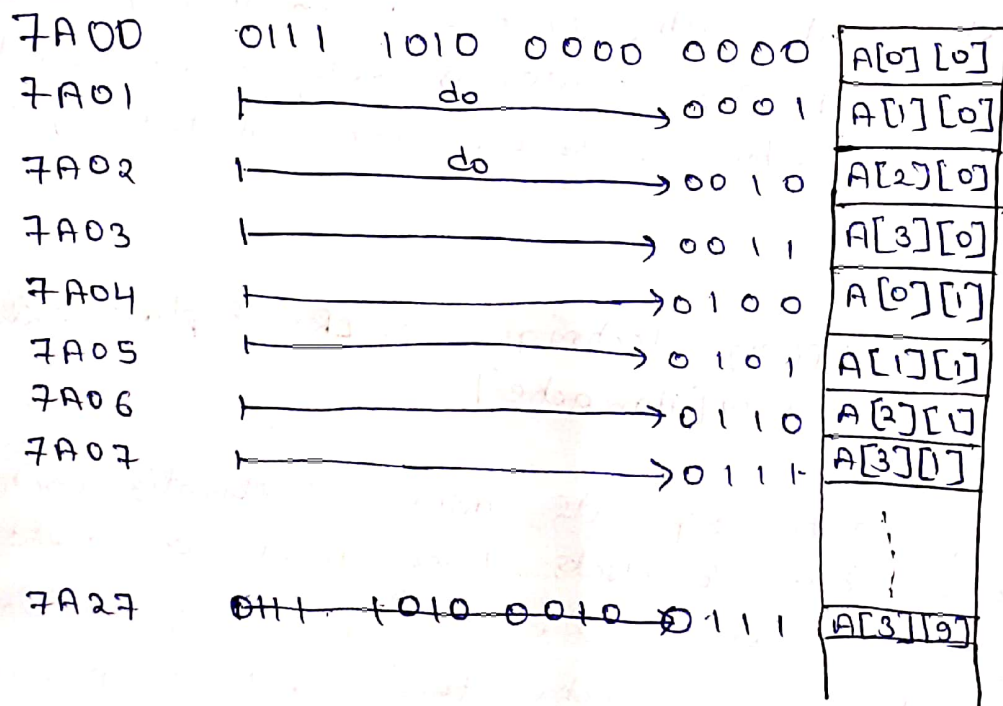 7A00 0111 1010 0000 0000 A[0][0]
7A01 do 0001 A[1][0]
7A02 do 0010 A[2][0]
7A03 0011 A[3][0]
7A04 0100 A[0][1]
7A05 0101 A[1][1]
7A06 0110 A[2][1]
7A07 0111 A[3][1]
7A27 0111 1010 0010 0111 A[3][9]